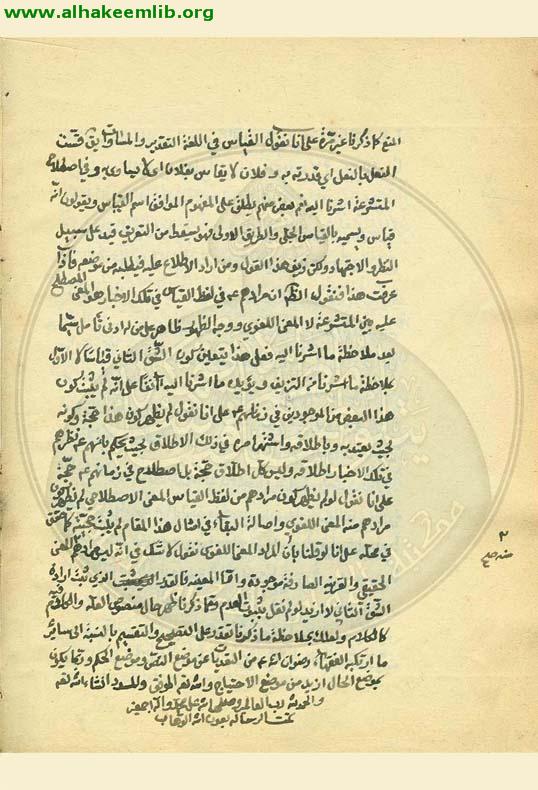 www.alhakeemlib.org
المنع كما ذكرنا غير مرة على انا نقول القياس في اللغة التقدير والمساواة يق قست
النعل بالنعل اي قدرته به وفلان لا يقاس بفلان اي لا يساويه وفي اصطلاح
المتشرعة اشرنا اليه نعم بعض منهم يطلق على المفهوم الموافق اسم القياس ويقولون انه
قياس ويسميه بالقياس الجلي والطريق الاولى فهو يسقط من التعريف قيد على سبيل
النظر والاجتهاد ولكن زيف هذا القول ومن اراد الاطلاع عليه فليطلبه من موضعه فاذا
عرفت هذا فنقول الظ ان مرادهم ع في لفظ القياس في تلك الاخبار هو المعنى المصطلح
عليه بين المتشرعة لا المعنى اللغوي ووجه الظهور ظاهر على من له ادنى تأمل سيما
بعد ملاحظة ما اشرنا اليه فعلى هذا يتعين كون الشق الثاني قياسا كالاول
بملاحظة ما اشرنا من التزييف ويؤيده ما اشرنا اليه آنفا على انه لم يثبت كون
هذا البعض من الموجودين في زمانهم ع على انا نقول لم يظهر كون هذا حجة وكونه
بحيث يعتد به وباطلاقه واشتهاره في ذلك الاطلاق بحيث يحكم بانهم ع نظرهم
في تلك الاخبار اطلاقه وليس كل اطلاق حجة بل اصطلاح في زمانهم ع حجة
على انا نقول لو لم يظهر كون مرادهم من لفظ القياس المعنى الاصطلاحي لم يظهر كون
مرادهم منه المعنى اللغوي واصالة البقاء في امثال هذا المقام لم يثبت حجيته كما حقق
في محله على انا لو قلنا بأن المراد المعنى اللغوي نقول لا شك في انه ليس مرادهم المعنى
الحقيقي والقرينة الصارفة موجودة واما المعينة فالقدر الذي يثبت ارادة
الشق الثاني لا ازيد لو لم نقل بثبوت العدم ومما ذكرنا ظهر حال منصوص العلة والكلام فيه
كالكلام ولعلك بملاحظة ما ذكرنا تقدر على التصحيح والتقسيم بالنسبة الى سائر
ما ارتكبه الفقهاء رضوان الله ع من التعديات عن موضع النص وموضع الحكم وربما يكون
موضع الحال ازيد من موضع الاحتياج والله نعم الموفق والمسدد انشاء الله تعم
والحمد لله رب العالمين وصلى الله على محمد وآله اجمعين
تمت الرسالة بعون الله الوهاب